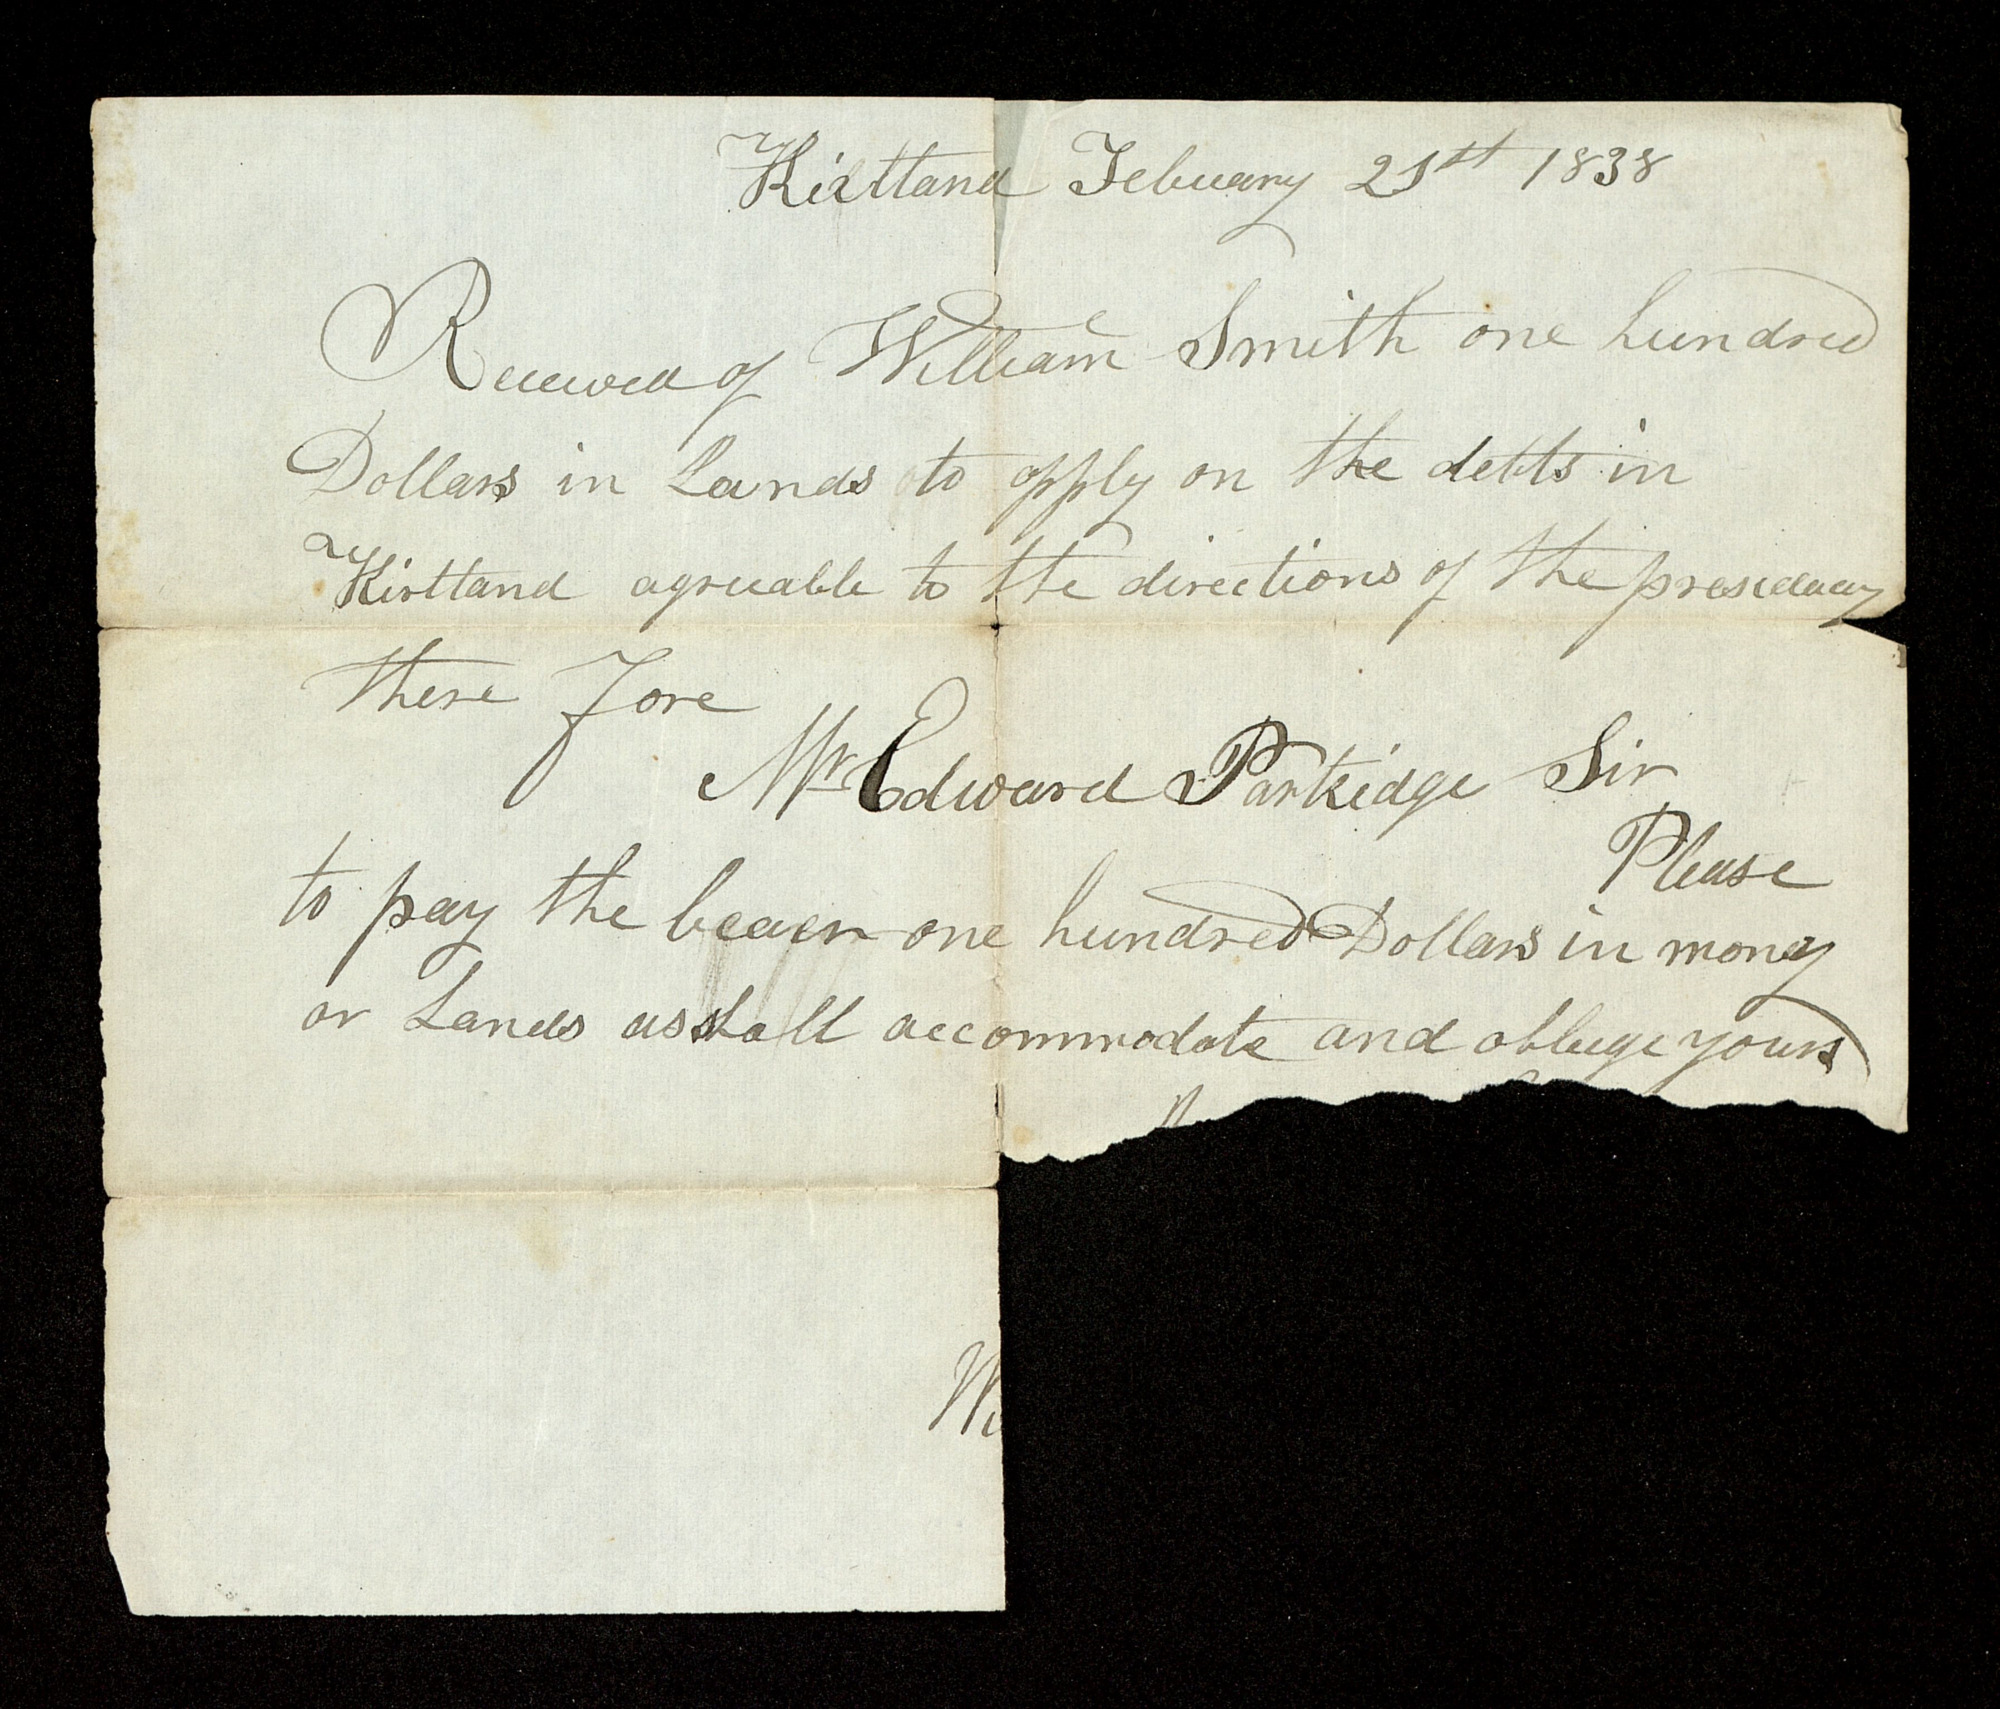 Kirttand Febuary 21st 1838
Received of William Smith one hundred
Dollars in Lands to apply on the debts in
Kirttand agreeable to the directions of the presidency
there Fore
Mr Edward Partridge Sir
Please
to pay the bearer one hundred Dollars in money
or Lands as shall accommodate and obliege yours
Wi